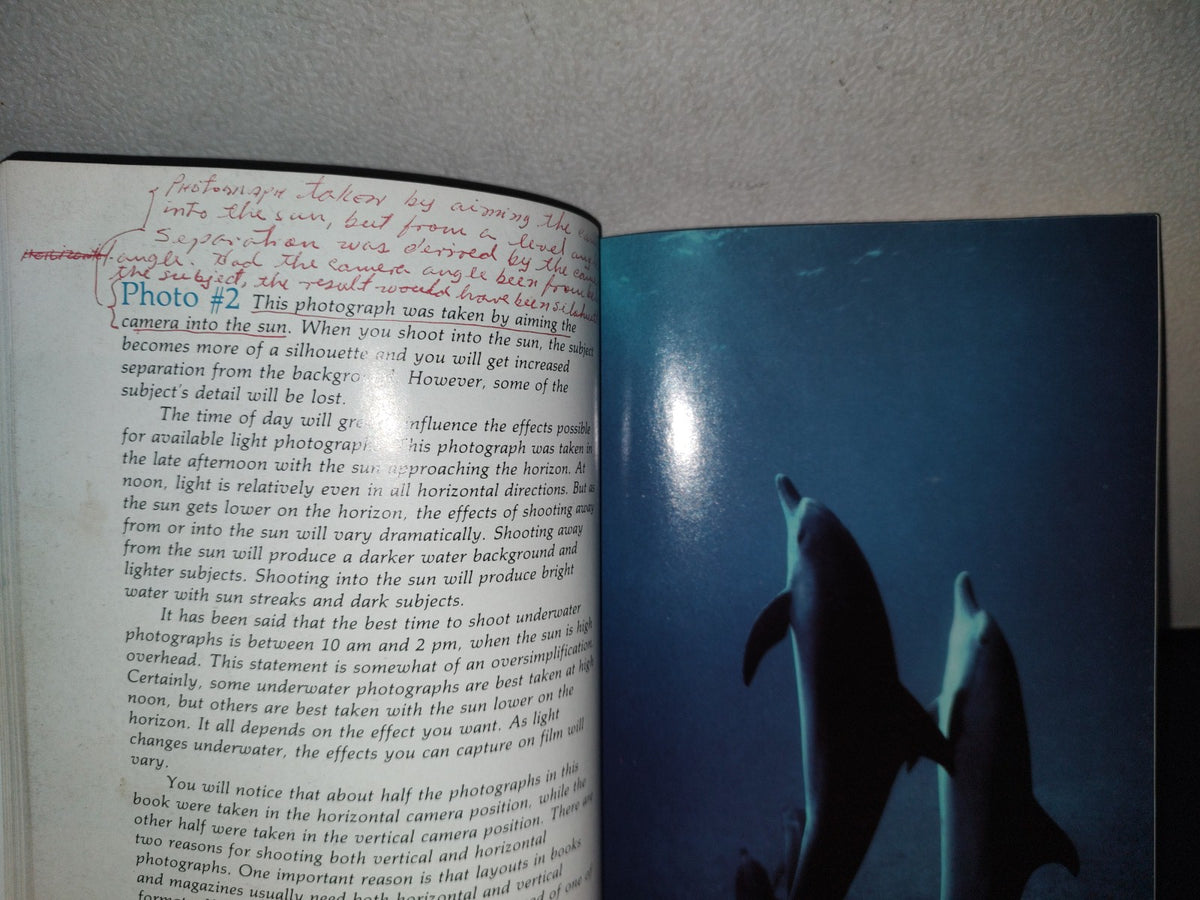 Photograph taken by aiming the
into the sun, but from a level
Separation was derived by the
angle. Had the camera angle been from
the subject, the result would have been
Photo #2 This photograph was taken by aiming the
camera into the sun. When you shoot into the sun, the subject
becomes more of a silhouette and you will get increased
separation from the However, some of the
subject's detail will be lost.
The time of day will influence the effects possible
for available light This photograph was taken in
the late afternoon with the sun approaching the horizon. At
noon, light is relatively even in all horizontal directions. But as
the sun gets lower on the horizon, the effects of shooting away
from or into the sun will vary dramatically. Shooting away
from the sun will produce a darker water background and
lighter subjects. Shooting into the sun will produce bright
water with sun streaks and dark subjects.
It has been said that the best time to shoot underwater
photographs is between 10 am and 2 pm, when the sun is high
overhead. This statement is somewhat of an oversimplification.
Certainly, some underwater photographs are best taken at high
noon, but others are best taken with the sun lower on the
horizon. It all depends on the effect you want. As light
changes underwater, the effects you can capture on film will
vary.
You will notice that about half the photographs in this
book were taken in the horizontal camera position, while the
other half were taken in the vertical camera position. There are
two reasons for shooting both vertical and horizontal
photographs. One important reason is that layouts in books
and magazines usually need both horizontal and vertical
of one of